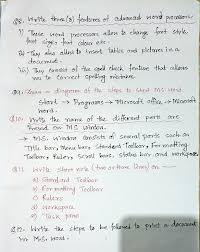 Q8. Write three (3) features of advanced word processor.
i) These word processors allow to change font style,
font sizes, font colour etc.
ii) They also allow to insert tables and pictures in a
document.
iii) They consist of the spell check feature that allows
us to correct spelling mistakes.
Q9. Draw a diagram of the steps to start MS Word.
Start → Programs → Microsoft office → Microsoft
word.
Q10. Write the name of the different parts are
present on MS window.
→ M.S. Window consists of several parts such as
Title bar, Menu bar, Standard Toolbar, Formatting
Toolbar, Rulers, Scroll bars, status bar and workspace.
Q11. Write Short note (two or three lines) on
a) Standard Toolbar
b) Formatting Toolbar
c) Rulers
d) Workspace
e) Task pane
Q12. Write the steps to be followed to print a document
in MS Word.